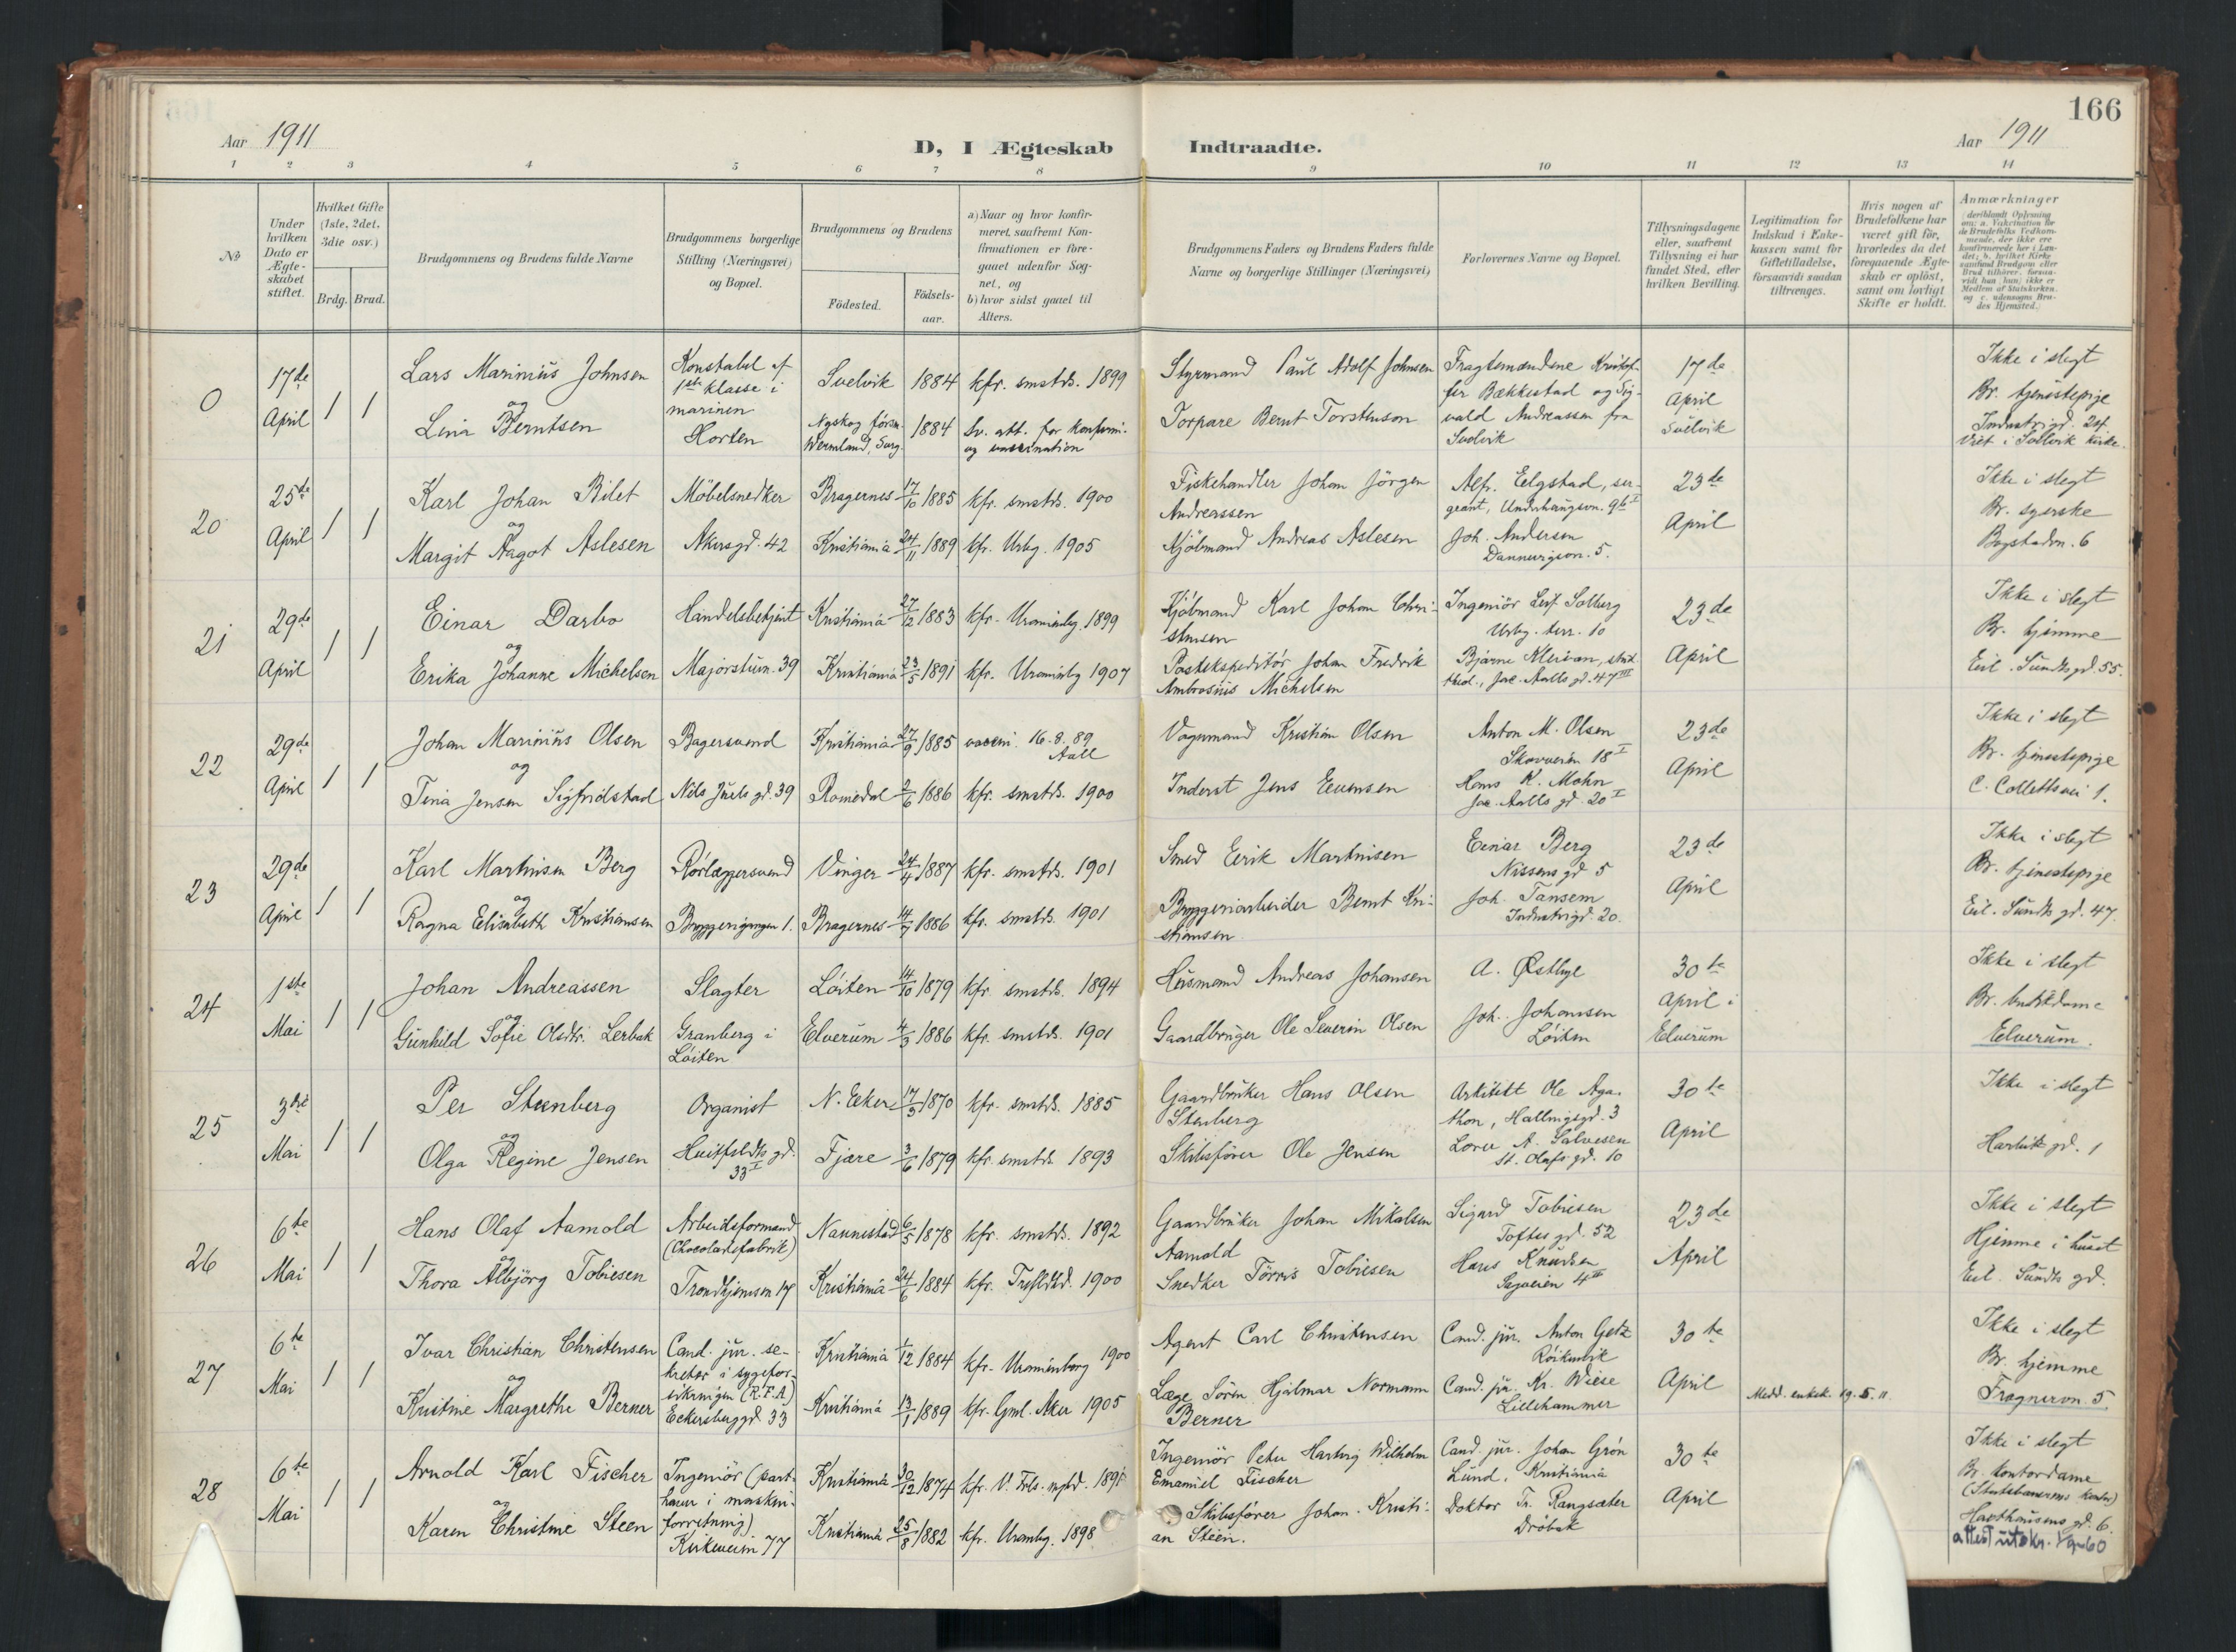 166
Aar 1911
D, I Ægteskab Indtraadte.
Aar 1911
1 2 3 4 5 6 7 8 9 10 11 12 13 14
No
Under hvilken Dato er Ægteskabet stiftet.
Hvilket Gifte (1ste, 2det, 3die osv.)
Brdg. Brud.
Brudgommens og Brudens fulde Navne
Brudgommens borgerlige Stilling (Næringsvei) og Bopæl.
Brudgommens og Brudens
Födested.
Födselsaar.
a) Naar og hvor konfirmeret, saafremt Konfirmationen er foregaaet udenfor Sognet, og
b) hvor sidst gaaet til Alters.
Brudgommens Faders og Brudens Faders fulde Navne og borgerlige Stillinger (Næringsvei)
Forlovernes Navne og Bopæl.
Tillysningsdagene eller, saafremt Tillysning ei har fundet Sted, efter hvilken Bevilling.
Legitimation for Indskud i Enkekassen samt for Giftetilladelse, forsaavidt saadan tiltrænges.
Hvis nogen af Brudefolkene har været gift för, hvorledes da det foregaaende Ægteskab er oplöst, samt om lovligt Skifte er holdt.
Anmærkninger
0
17de April
1 1
Lars Marinius Johnsen
og
Lina Berntsen
Konstabel af
1ste klasse i
marinen
Horten
Svelvik 1884 kfr. smstds. 1899
Nyskog försm.
Wermland, 1884
Sv. att. for konfirm.
og vaccination
Styrmand Paul Adolf Johnsen
Torpare Bernt Torstenson
Fragtemændene Kristof-
fer Bækkestad og Sig-
vald Andreassen fra
Svelvik
17de
April
Svelvik
Ikke i slegt
Br. tjenestepige
Industrigd. 24
Viet i Svelvik kirke.
20
25de April
1 1
Karl Johan Bilet
og
Margit Aagot Aslesen
Möbelsnedker
Akersgd. 42
Bragernes 17/10 1885 kfr. smstds. 1900
Kristiania 24/11 1889 kfr. Urbg. 1905
Fiskehandler Johan Jörgen
Andreassen
Kjöbmand Andreas Aslesen
Alfr. Elgstad, ser-
geant, Underhaugsvn. 9b I
Joh. Andersen
Dannevigsvn. 5.
23de
April
Ikke i slegt
Br. syerske
Bogstadvn. 6
21
29de April
1 1
Einar Darbo
og
Erika Johanne Michelsen
Handelsbetjent
Majorstuvn. 39
Kristiania 27/12 1883 kfr. Uranienbg. 1899
Kristiania 23/5 1891 kfr. Uranienbg 1907
Kjöbmand Karl Johan Chri-
stensen
Postekspeditör Johan Fredrik
Ambrosius Michelsen
Ingeniör Leif Solberg
Urbg. terr. 10
Bjarne , stud.
theol., Jac. Aalls gd. 47 III
23de
April
Ikke i slegt
Br. hjemme
Eil. Sundts gd. 55.
22
29de April
1 1
Johan Marinius Olsen
og
Tina Jensen Sigfridstad
Bagersvend
Nils Juels gd. 39
Kristiania 27/9 1885 vaccin. 16.8.89
Aall
Romedal 2/6 1886 kfr. smstds. 1900
Vognmand Kristian Olsen
Inderst Jens Evensen
Anton M. Olsen
Skovveien 18 I
Hans K. Mohn
Jac. Aalls gd. 20 I
23de
April
Ikke i slegt
Br. tjenestepige
C. Collettsvei 1.
23
29de April
1 1
Karl Martinsen Berg
og
Ragna Elisabeth Kristiansen
Rörlæggersvend
Bryggerigangen 1.
Vinger 24/4 1887 kfr. smstds. 1901
Bragernes 14/7 1886 kfr. smstds. 1901
Smed Eirik Martinisen
Bryggeriarbeider Bernt Kri-
stiansen.
Einar Berg
Nissens gd 5
Joh. Tansem
Industrigd. 20.
23de
April
Ikke i slegt
Br. tjenestepige
Eil. Sundts gd. 47.
24
1ste Mai
1 1
Johan Andreassen
og
Gunhild Sofie Olsdtr. Lerbak
Slagter
Granberg i
Löiten
Löiten 14/10 1879 kfr. smstds. 1894
Elverum 4/3 1886 kfr. smstds. 1901
Husmand Andreas Johansen
Gaardbruger Ole Severin Olsen
A. Østbye
Joh. Johansen
Löiten
30te
April i
Elverum
Ikke i slegt
Br. butikdame
Elverum.
25
3die Mai
1 1
Per Steenberg
og
Olga Regine Jensen
Organist
Huitfeldts gd.
33 I
N. Eeker 17/5 1870 kfr. smstds. 1885
Fjære 3/6 1879 kfr. smstds. 1893
Gaardbruker Hans Olsen
Stenberg
Skibsförer Ole Jensen
Arkitekt Ole Aga-
thon, Hallingsgd. 3
A. Salvesen
St. Olafs gd. 10
30te
April
Ikke i slegt
gd. 1
26
6te Mai
1 1
Hans Olaf Aamold
og
Thora Albjörg Tobiesen
Arbeidsformand
(Chocoladefabrik)
Trondhjemsvn 17
Nannestad 6/5 1878 kfr. smstds. 1892
Kristiania 24/6 1884 kfr. 1900
Gaardbruker Johan Mikalsen
Aamold
Snedker Törris Tobiesen
Sigurd Tobiesen
Toftes gd. 52
Hans Knudsen
Sagveien 4 III
23de
April
Ikke i slegt
Hjemme i huset
Eil. Sundts gd.
27
6te Mai
1 1
Ivar Christian Christensen
og
Kristine Margrethe Berner
Cand. jur. se-
kretær i sygefor-
sikringen (R.F.A)
Eckersberggd. 33
Kristiania 1/12 1884 kfr. Uranienborg 1900
Kristiania 13/1 1889 kfr. Gml. Aker 1905
Agent Carl Christensen
Læge Sören Hjalmar Normann
Berner
Cand. jur. Anton Getz
Röikenvik
Cand. jur. Kr. Wiese
Lillehammer
30te
April
Medd. enkek. 19.5.11.
Ikke i slegt
Br. hjemme
Frognervn. 5.
28
6te Mai
1 1
Arnold Karl Fischer
og
Karen Christine Steen
Ingeniör (part-
haver i maskin-
forretning)
Kirkeveien 77
Kristiania 30/12 1874 kfr. V. Frls. mghd.
Kristiania 25/8 1882 kfr. Uranbg. 1898
Ingeniör Peter Hartvig Wilhelm
Emanuel Fischer
Skibsförer Johan Kristi-
an Steen.
Cand. jur. Johan Grön
Lund, Kristiania
Doktor Tr. Rangsæter
Dröbak
30te
April
Ikke i slegt
Br. kontordame
(Statsbanerens kontor)
Havthausens gd. 6.
attest utskr. 1/9-60